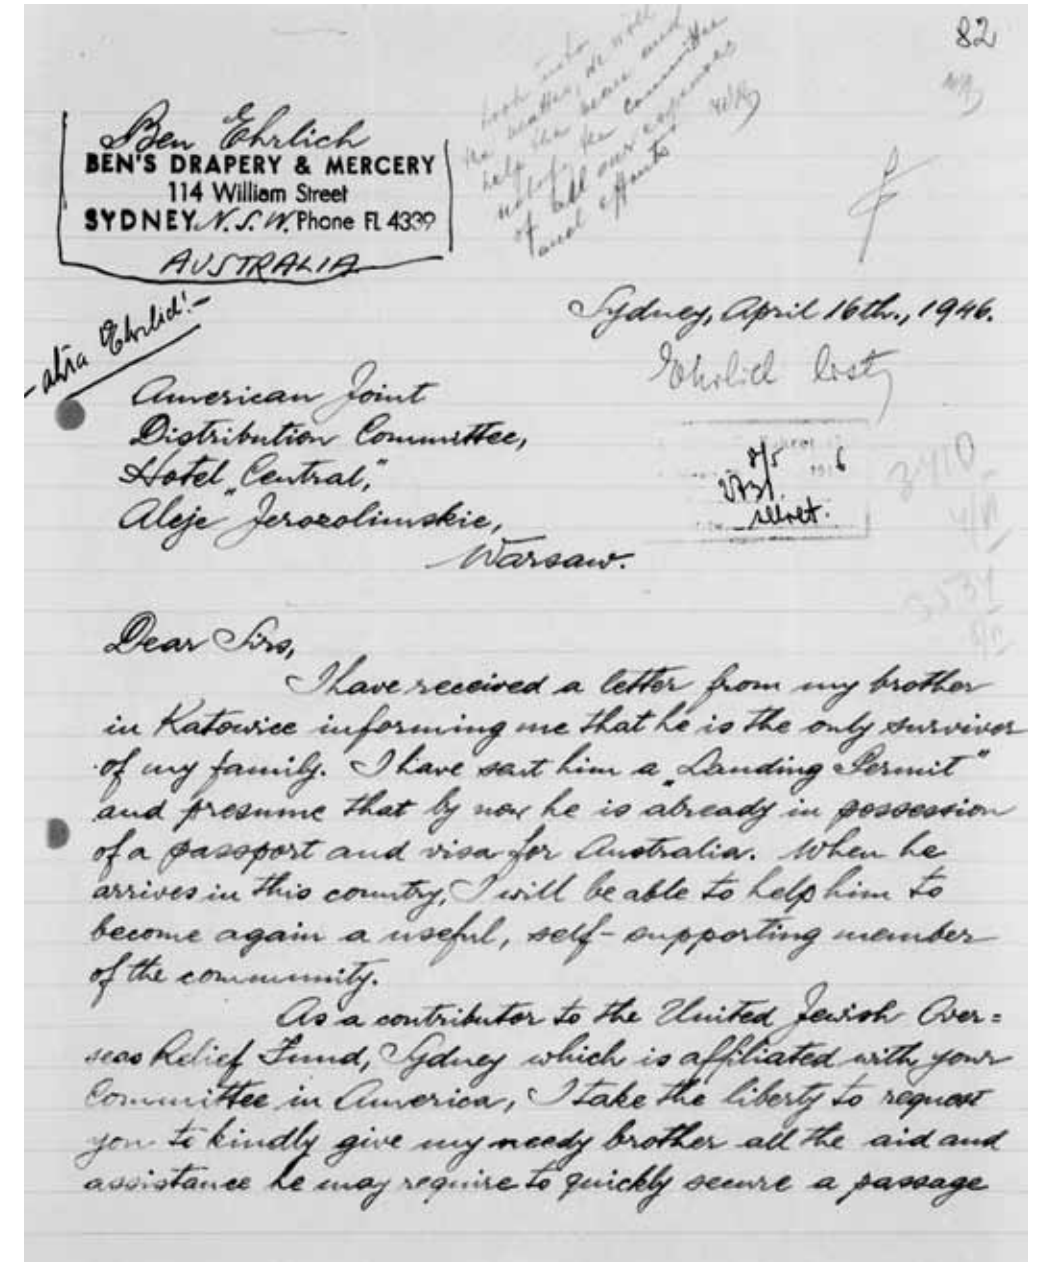 82
look into
the matter, he will
help the  and
 the committee
of all our expenses
and efforts
WR
Ben Ehrlich
BEN'S DRAPERY & MERCERY
114 William Street
SYDNEY N.S.W. Phone FL 4339
AUSTRALIA
Sydney, April 16th., 1946.
Ehrlich!-
Ehrlich listy
American Joint
Distribution Committee,
Hotel „Central,"
Aleje Jerozolimskie,
Warsaw.
8/5 6
3410
3534
Dear Sirs,
I have received a letter from my brother
in Katowice informing me that he is the only survivor
of my family. I have sent him a „Landing Permit"
and presume that by now he is already in possession
of a passport and visa for Australia. When he
arrives in this country, I will be able to help him to
become again a useful, self-supporting member
of the community.
As a contributor to the United Jewish Over=
seas Relief Fund, Sydney which is affiliated with your
Committee in America, I take the liberty to request
you to kindly give my needy brother all the aid and
assistance he may require to quickly secure a passage